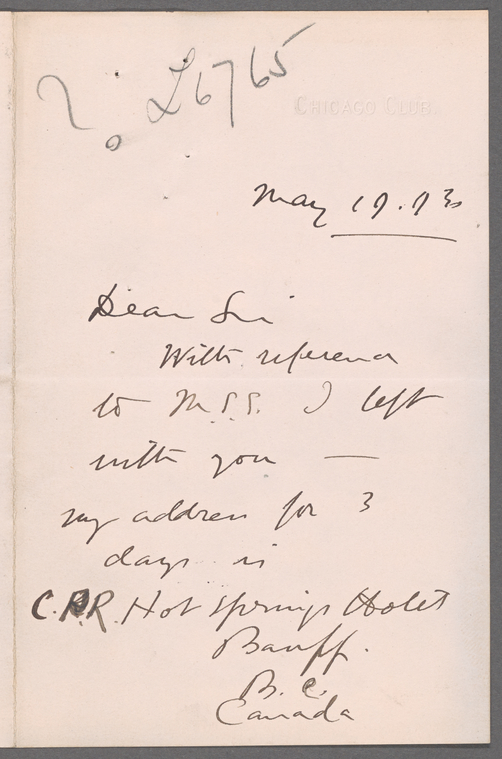 L6765
CHICAGO CLUB.
May 19.93
Dear Sir
With reference
to M.S.S. I left
with you —
my address for 3
days is
C.P.R. Hot Springs Hotel
Banff.
B.C.
Canada